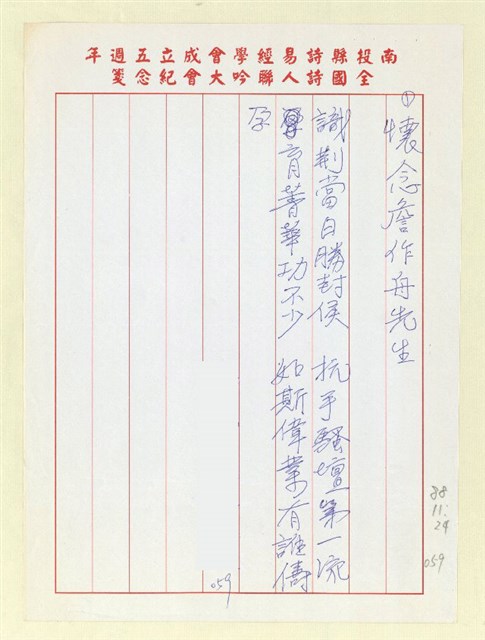 南投縣詩易經學會成立五週年
全國詩人聯吟大會紀念箋
①懷念詹作舟先生
識荆當日勝封侯　抗手騷壇第一流
育菁華功不少　如斯偉業有誰儔
孕
88
11.
24
059
059